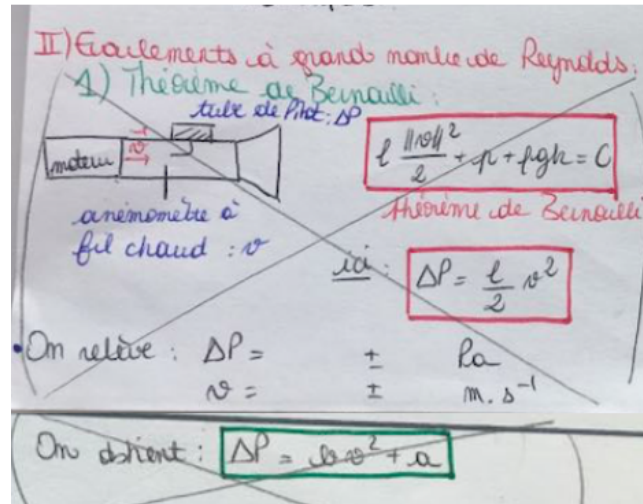 II) Ecoulements à grand nombre de Reynolds:
1) Théorème de Bernoulli:
tube de Pitot: ΔP
moteur
v
ρ ||v||²/2 + p + ρgh = C
anémomètre à
fil chaud : v
théorème de Bernoulli
ici: ΔP = ρ/2 v²
• On relève : ΔP = ± Pa
v = ± m.s⁻¹
On obtient : ΔP = b v² + a